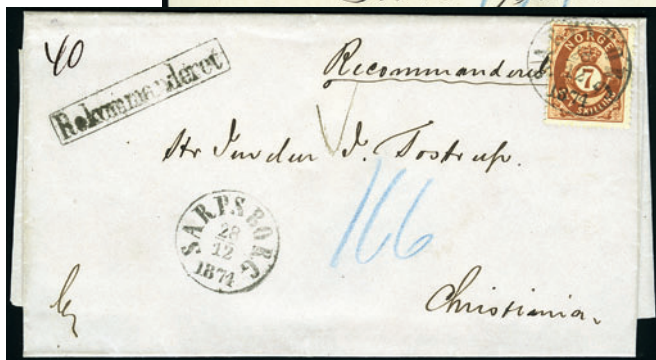 40
Rekommanderet
Recommanderet
NORGE
7
SKILLING
1874
Hr J. Tostrup.
166
SARPSBORG
28
12
1874
Christiania.